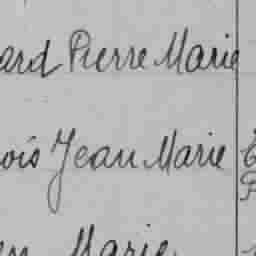 ard Pierre Marie
ois Jean Marie
en Marie